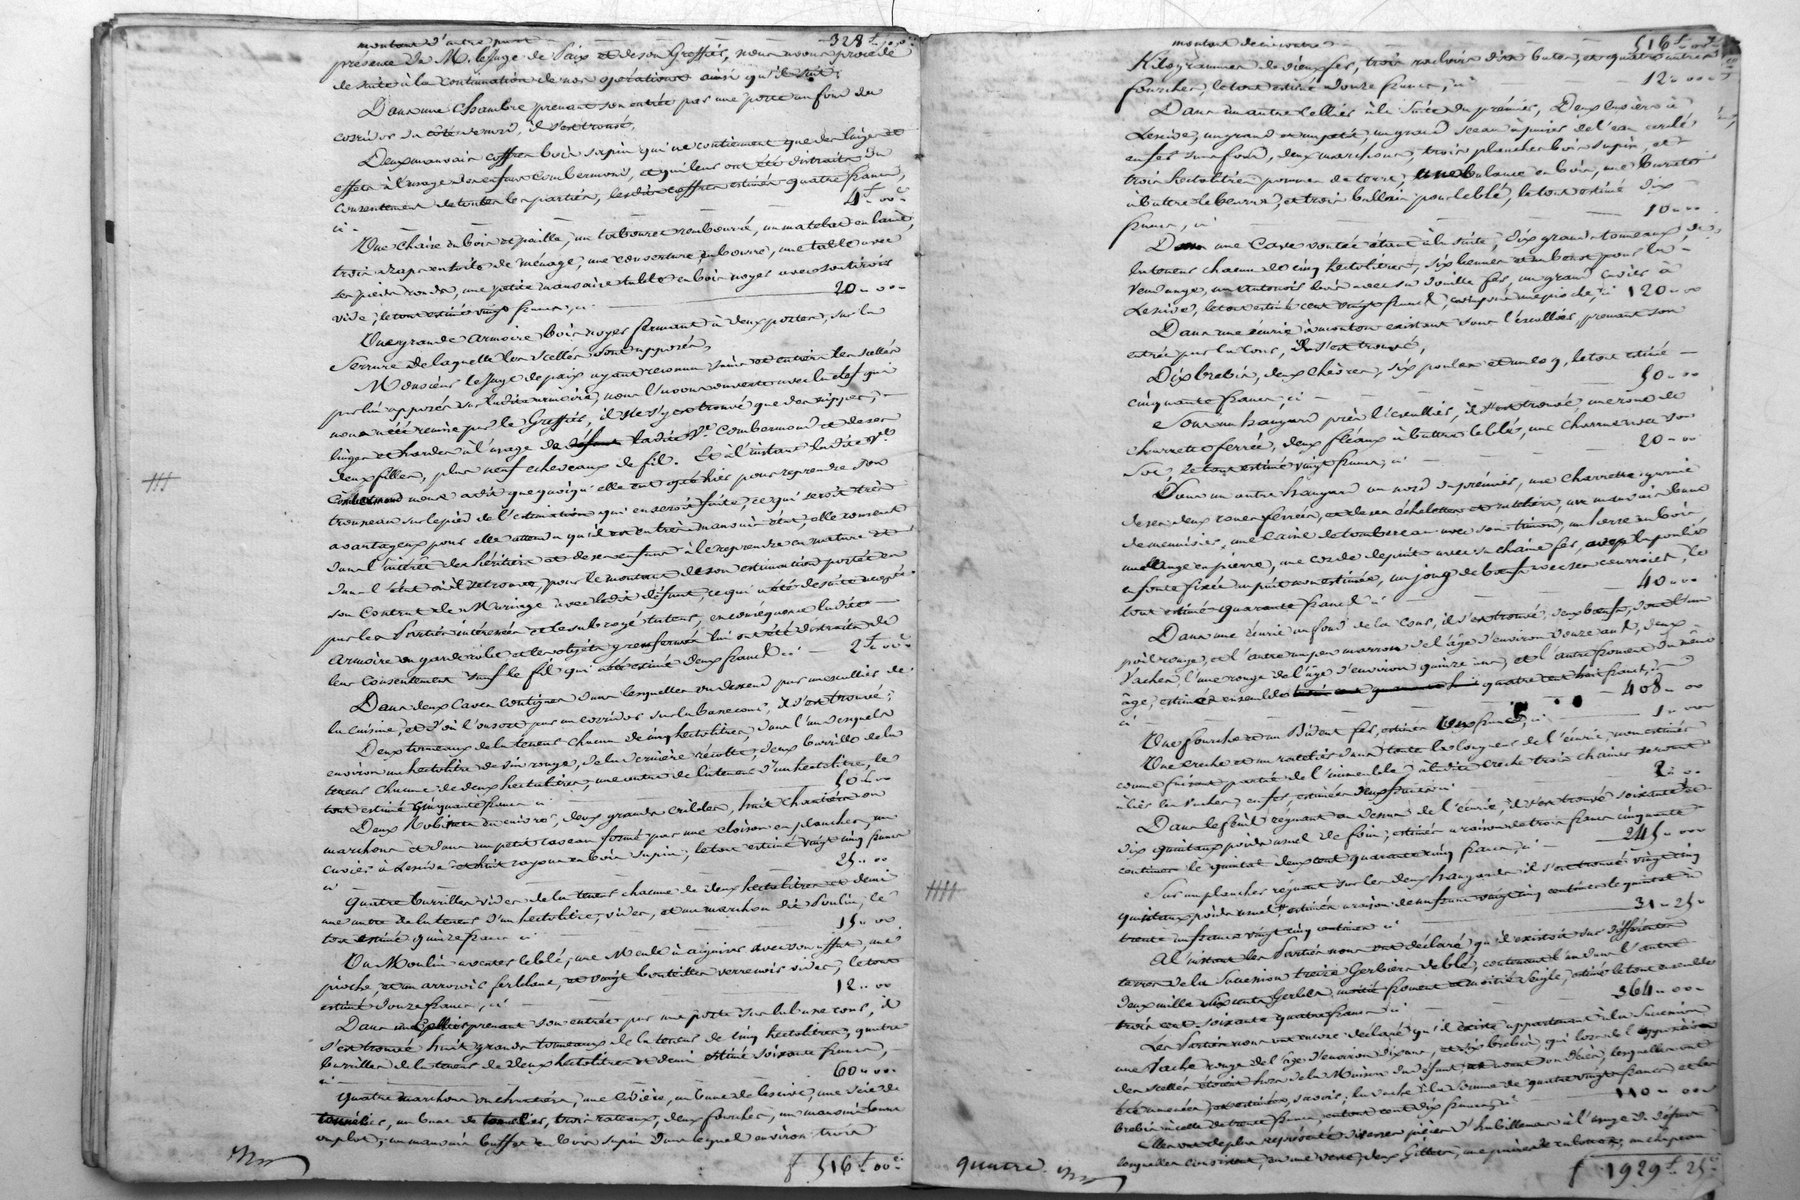 montant d'autre part 328 f
présence de M. le Juge de Paix et de son Greffier, nous avons procédé
de suite à la continuation de nos opérations ainsi qu'il suit,
Dans une Chambre prenant son entrée par une porte au fond du
corridor du côté de nord, il s'est trouvé,
Deux mauvais coffres bois sapin qui ne contiennent que des linges et
effets à l'usage des enfans Combermond, et qui leur ont été distraits du
consentement de toutes les parties, lesdits coffres estimés quatre francs,
ci - 4 f 00 c
Une chaise en bois et paille, un tabouret rembourré, un matelas en laine,
trois draps en toile de ménage, une couverture en bourre, une table avec
ses pieds ronds, une petite mauvaise table en bois noyer avec son tiroir
vide; le tout estimé vingt francs, ci 20 .. 00
Une grande armoire bois noyer fermant à deux portes, sur la
serrure de laquelle les scellés sont apposés,
Monsieur le Juge de paix ayant reconnu sains et entiers les scellés
par lui apposés sur ladite armoire, nous l'avons ouverte avec la clef qui
nous a été remise par le Greffier, il ne s'y est trouvé que des nippes,
linges et hardes à l'usage de ladite Ve Combermond et de ses
deux filles, plus neuf echeveaux de fil. Et à l'instant ladite Ve
Combermond nous a dit que quoiqu'elle eut opté hier pour reprendre son
trousseau sur le pied de l'estimation qui en seroit faite, ce qui seroit très
avantageux pour elle attendu qu'il est en très mauvais état, elle consent
dans l'intérêt des héritiers et de ses enfans à le reprendre en nature et
dans l'état où il se trouve, pour le montant de son estimation portée en
son Contrat de Mariage avec ledit défunt, ce qui a été de suite accepté
par les Parties intéressées et le subrogé tuteur, en conséquence ladite
armoire ou garderobe et les objets y renfermés lui ont été distraits de
leur consentement sauf le fil qui a été estimé deux francs ci - 2 f 00 c
Dans deux Caves contigues dans lesquelles on descend par un escallier de
la cuisine, et d'où l'on sort par un corridor sur la basse cour, il s'est trouvé;
Deux tonneaux de la teneur chacun de cinq hectolitres, dans l'un desquels
environ un hectolitre de vin rouge, de la dernière récolte, deux barrilles de la
teneur chacune de deux hectolitres, une autre de la teneur d'un hectolitre, le
tout estimé cinquante francs ci 50 .. 00
Deux Robinets en cuivre, deux grands cribles, huit chantiers ou
marchons et dans un petit caveau formé par une cloison en planches, un
cuvier à Lessive et huit rayons en bois sapin; le tout estimé vingt cinq francs
ci 25 .. 00
Quatre barrilles vides de la teneur chacune de deux hectolitres et demi
une autre de la teneur d'un hectolitre, vides, et un marchon dit Poulin; le
tout estimé quinze francs ci 15 .. 00
Un Moulin à vanner le blé, une Meule à aiguiser avec son affut, une
pioche, et un arrosoir fer blanc, et vingt bouteilles verre noir vides; le tout
estimé douze francs, ci 12 .. 00
Dans un Cellier prenant son entrée par une porte sur la basse cour, il
s'est trouvé huit grands tonneaux de la teneur de cinq hectolitres, quatre
barrilles de la teneur de deux hectolitres et demi estimé soixante francs,
ci 60 .. 00
Quatre marchons ou chantiers, une civière, un banc de lessive, une scie de
un banc de trois rateaux, deux fourches, un mauvais banc
un mauvais buffet en bois sapin dans lequel environ trois
f 516 f 00 c
montant de ci contre 516 f 00 c
Kilogrammes de vieux fer, trois racloirs dix butes, et quatre autres
fourches, le tout estimé douze francs, ci 12 .. 00
Dans un autre Cellier à la suite du premier, Deux cuviers à
Lessive, un grand et un petit, un grand sceau à puiser de l'eau cerclé
en fer sans fond, deux marchons, trois planches bois sapin, et
trois hectolitres pommes de terre, une balance en bois, une baratte
à battre le beurre, et trois ballois pour le blé; le tout estimé dix
francs, ci 10 .. 00
Dans une Cave voutée étant à la suite, dix grands tonneaux de
la teneur chacun de cinq hectolitres, six bennes et un benot pour la
vendange, un entonnoir bois avec sa douille fer, un grand cuvier à
Lessive, le tout estimé cent vingt francs, compris une pioche, ci 120 .. 00
Dans une écurie à moutons existant sous l'escallier prenant son
entrée par la Cour, il s'est trouvé,
Dix brebis, deux chèvres, six poules et un coq, le tout estimé
cinquante francs, ci 50 .. 00
Sous un hangard près l'escallier, il s'est trouvé, une roue de
charrette ferrée, deux fléaux à battre le blé, une charrue avec son
soc, le tout estimé vingt francs, ci 20 .. 00
Dans un autre hangard au nord du premier, une charrette garnie
de ses deux roues ferrées, et de ses échelettes et ratelier, un mauvais banc
de menuisier, une caisse de tombereau avec son timon, un herse en bois
une Auge en pierre, une corde de puits avec sa chaîne fer, avec la poulie
en fonte fixée au puits non estimée, un joug de boeufs avec ses courroies, le
tout estimé quarante francs ci 40 .. 00
Dans une écurie au fond de la Cour, il s'est trouvé, deux boeufs, dont l'un
poil rouge, et l'autre un peu marron de l'âge d'environ douze ans, deux
Vaches l'une rouge de l'âge d'environ quinze ans, et l'autre froment du même
âge, estimés ensemble quatre cent huit francs,
ci 408 .. 00
Une fourche et un Bident fer, estimés un franc, ci 1 .. 00
Une creche et un ratelier dans toute la longueur de l'écurie, non estimés
comme faisant partie de l'immeuble, à ladite creche trois chaines servant
à lier les Vaches, en fer, estimées deux francs ci 2 .. 00
Dans le fenil regnant au dessus de l'écurie, il s'est trouvé soixante et
dix quintaux poids usuel de foin, estimés à raison de trois francs cinquante
centimes le quintal deux cent quarante cinq francs, ci 245 .. 00
Sur un plancher régnant sur les deux hangards il s'est trouvé vingt cinq
quintaux poids usuel, estimés à raison de un franc vingt cinq centimes le quintal
trente un francs vingt cinq centimes ci 31 .. 25
A l'instant les Parties nous ont déclaré qu'il existoit sur différentes
terres de la Succession treize Gerbiers de blé, contenant l'un dans l'autre
deux mille six cents Gerbes, moitié froment et moitié seigle, estimé le tout ensemble
trois cent soixante quatre francs ci 364 .. 00
Les Parties nous ont encore déclaré qu'il existe appartenant à la Succession
une Vache rouge de l'âge d'environ dix ans, et six brebis, qui lors de l'apposition
des scellés étoient hors de la Maison du défunt, lesquelles ont
été amenées et estimées, savoir, la vache à la somme de quatre vingt francs et les
brebis à celle de trente francs, en tout cent dix francs, ci 110 .. 00
Elles ont de plus représenté diverses pièces d'habillement à l'usage du défunt
lesquelles consistent, en une veste, deux Gillets, une paire de culottes, un chapeau
quatre f 1929 f 25 c